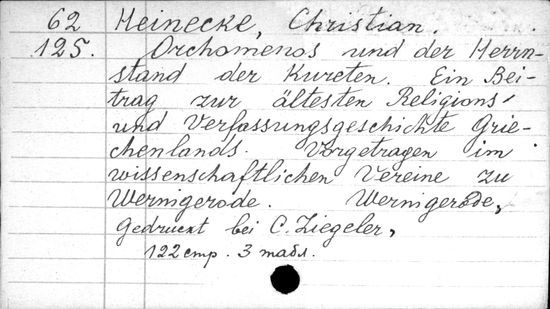 62 Heinecke, Christian.
125. Orchomenos und der Herrn-
stand der Kureten. Ein Bei-
trag zur ältesten Religions-
und Verfassungsgeschichte Grie-
chenlands. Vorgetragen im
wissenschaftlichen Vereine zu
Wernigerode. Wernigerode,
Gedruckt bei C. Ziegeler,
122 стр. 3 табл.